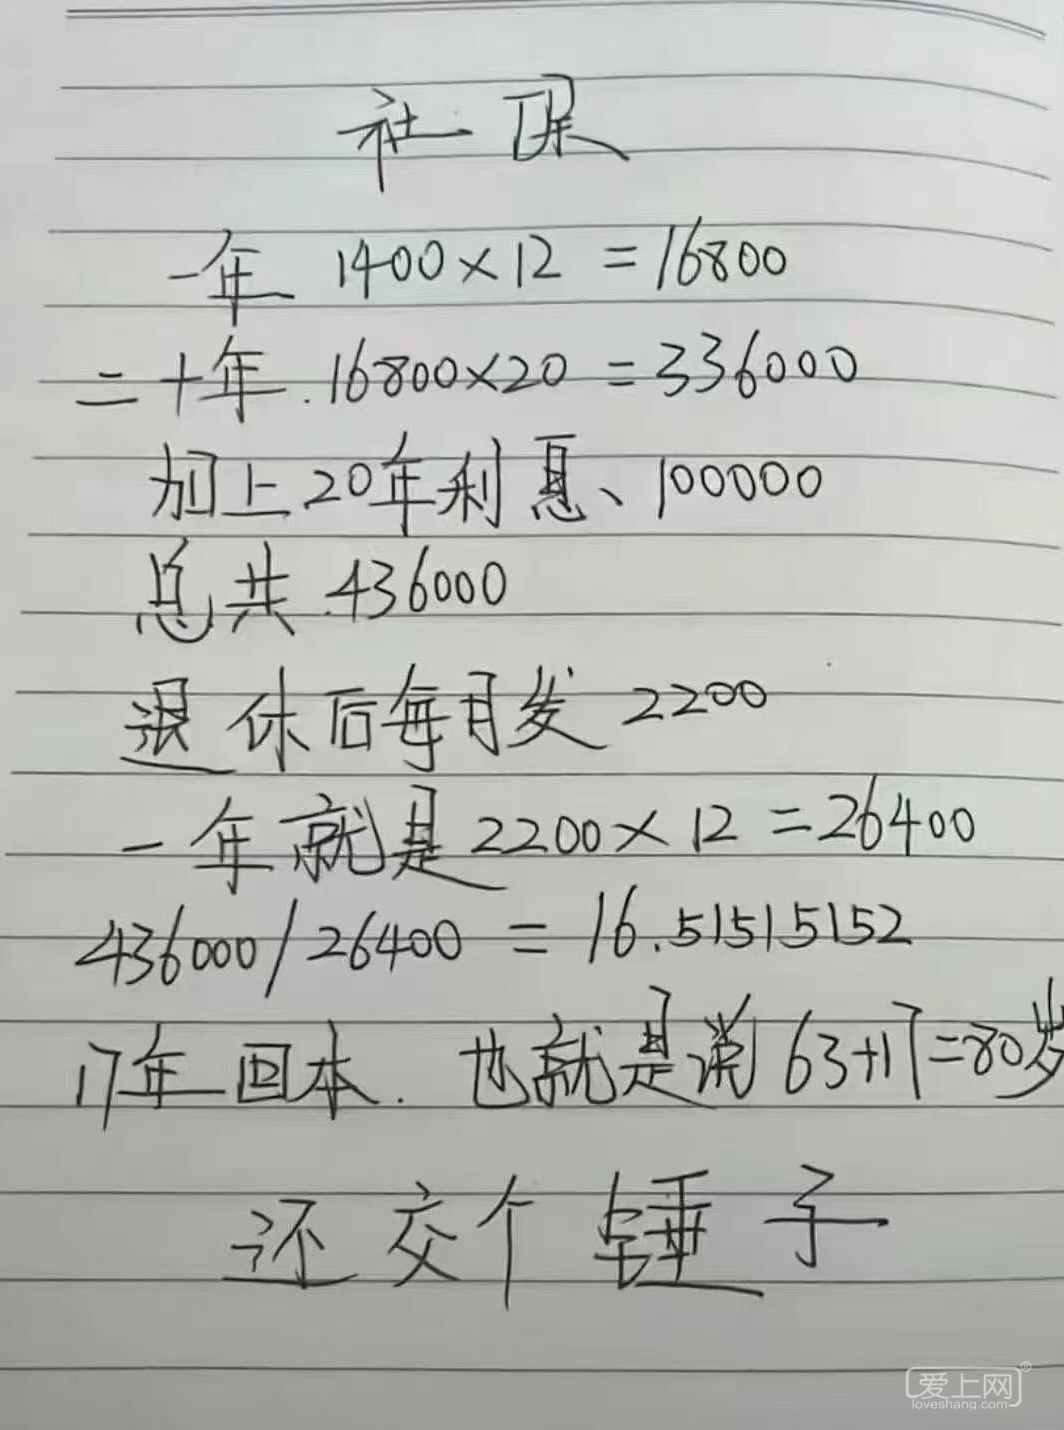 社保
一年 1400×12 =16800
二十年.16800×20 =336000
加上20年利息、100000
总共.436000
退休后每月发 2200
一年就是2200×12 =26400
436000/26400 = 16.51515152
17年回本. 也就是说63+17=80岁
还交个锤子
爱上网®
loveshang.com